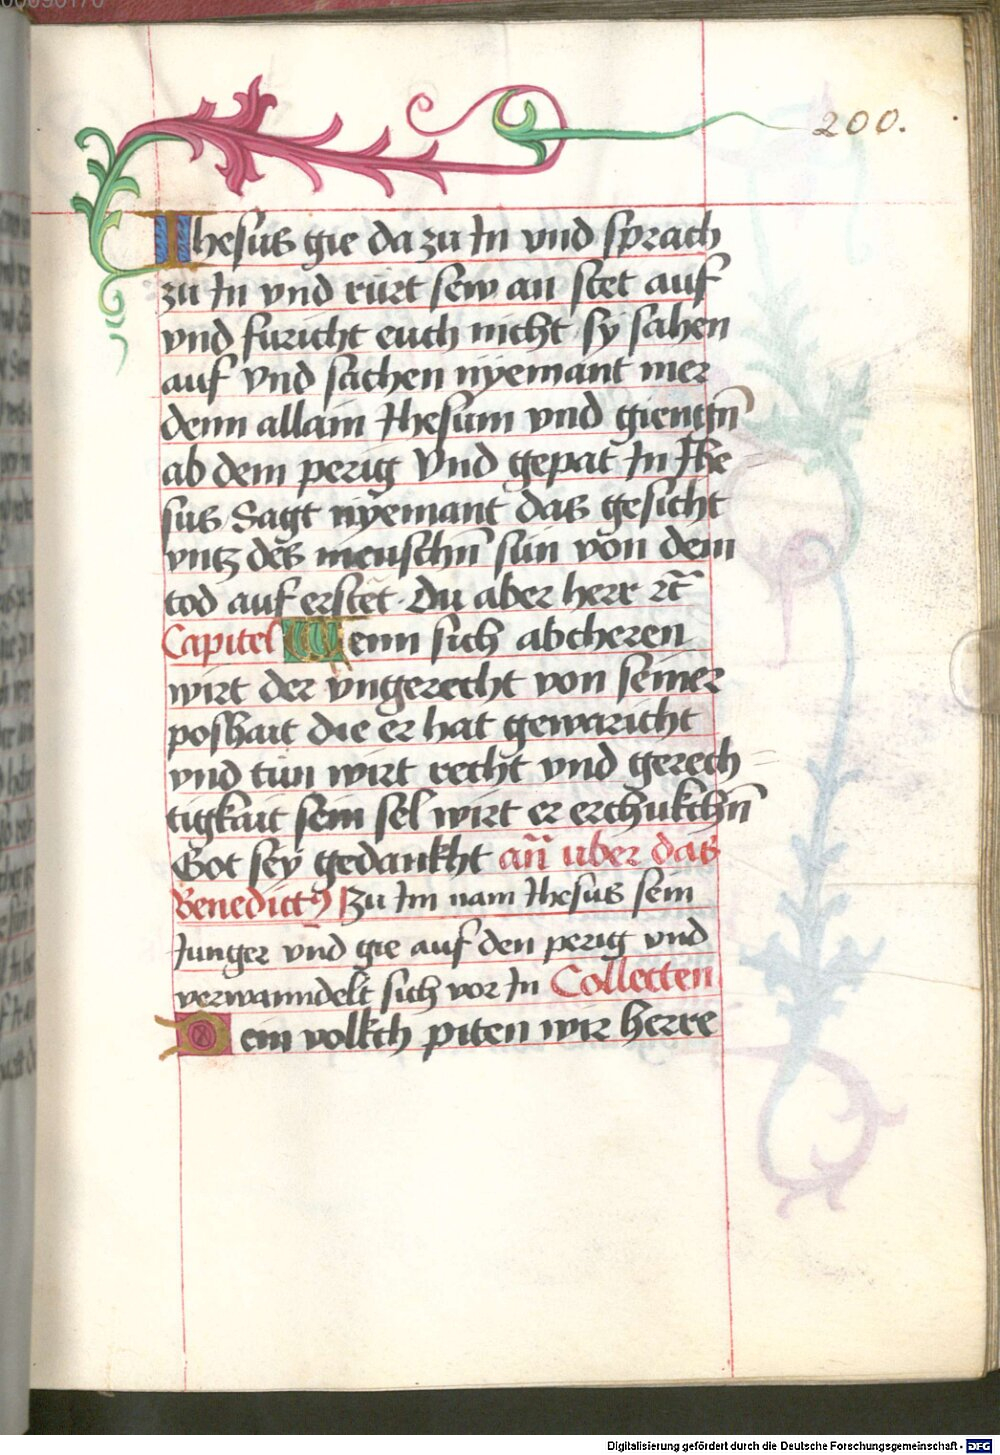 200.
Ihesus gie da zu In vnd sprach
zu In vnd rürt sew an stet auf
vnd furicht euch nicht sy sahen
auf vnd sachen nÿemant mer
denn allain Ihesum vnd giengn̄
ab dem perig Vnd gepat In Ihe
sus Sagt nÿemant das gesicht
vntz des menschn̄ sun von dem
tod auf erstet. Du aber herr rc̄
Capitel Wenn sich abcheren
wirt der vngerecht von seiner
poshait die er hat gewaricht
vnd tun wirt recht vnd gerech
tigkait sein sel wirt er erchukchn̄
Got seÿ gedankht an̄ uber das
Benedictꝯ Zu Im nam Ihesus sein
Junger vnd gie auf den perig vnd
verwanndelt sich vor In Collecten
Dein volkch piten wir herre
Digitalisierung gefördert durch die Deutsche Forschungsgemeinschaft - DFG